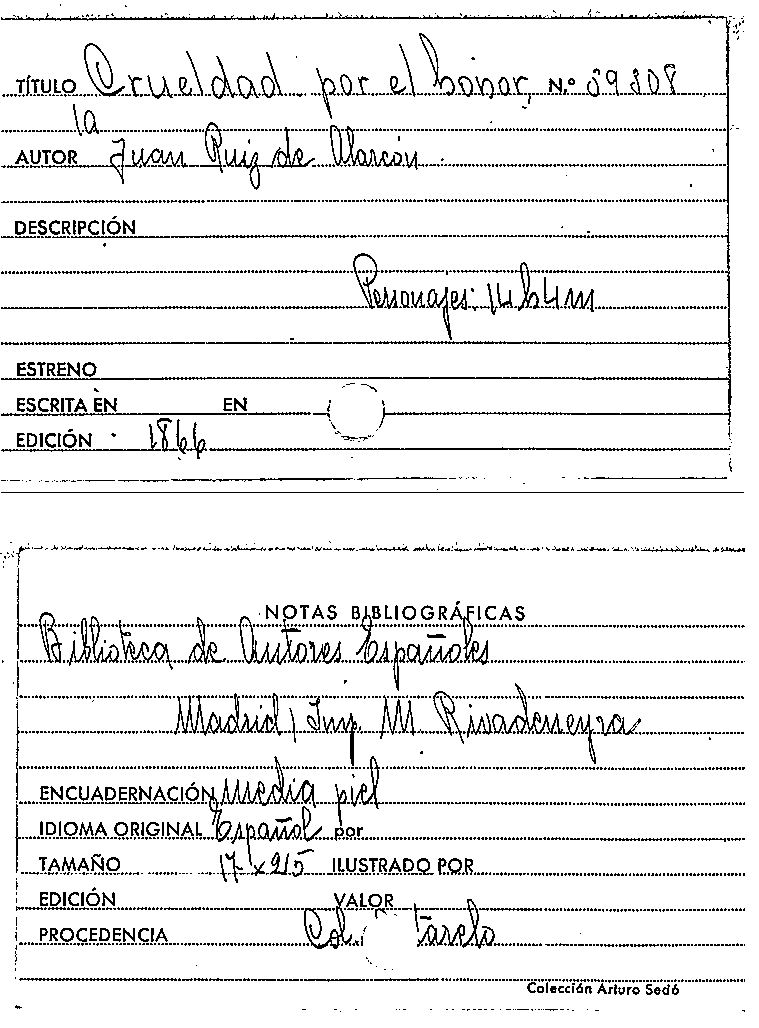 TÍTULO Crueldad por el honor, N.º 59308
la
AUTOR Juan Ruiz de Alarcón
DESCRIPCIÓN
Personajes: 14 h 4 m
ESTRENO
ESCRITA EN EN
EDICIÓN 1866
NOTAS BIBLIOGRÁFICAS
Biblioteca de Autores Españoles
Madrid, Imp. M. Rivadeneyra
ENCUADERNACIÓN media piel
IDIOMA ORIGINAL Español por
TAMAÑO 17 x 25 ILUSTRADO POR
EDICIÓN VALOR
PROCEDENCIA Col. tarelo
Colección Arturo Sedó